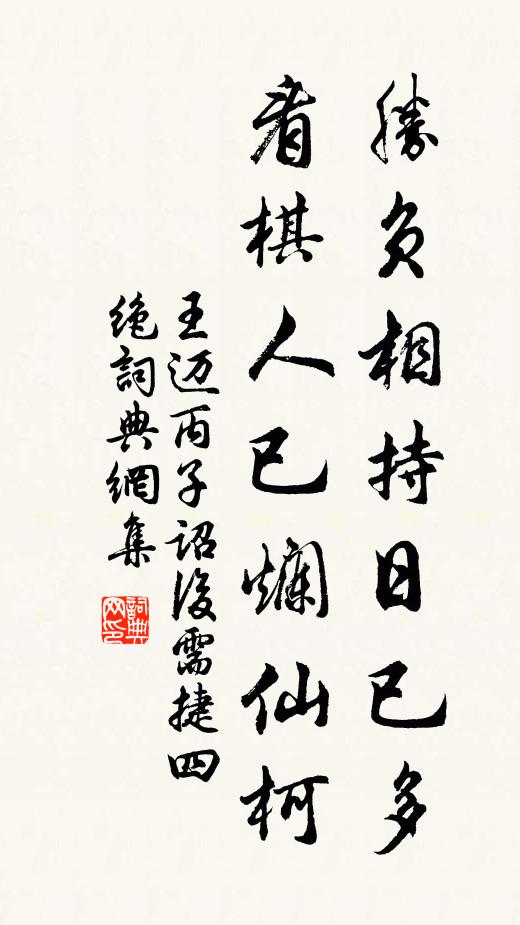 勝负相持日已多
看棋人已爛仙柯
王迈丙子诏後需捷四
绝詞典網集
詞典网印